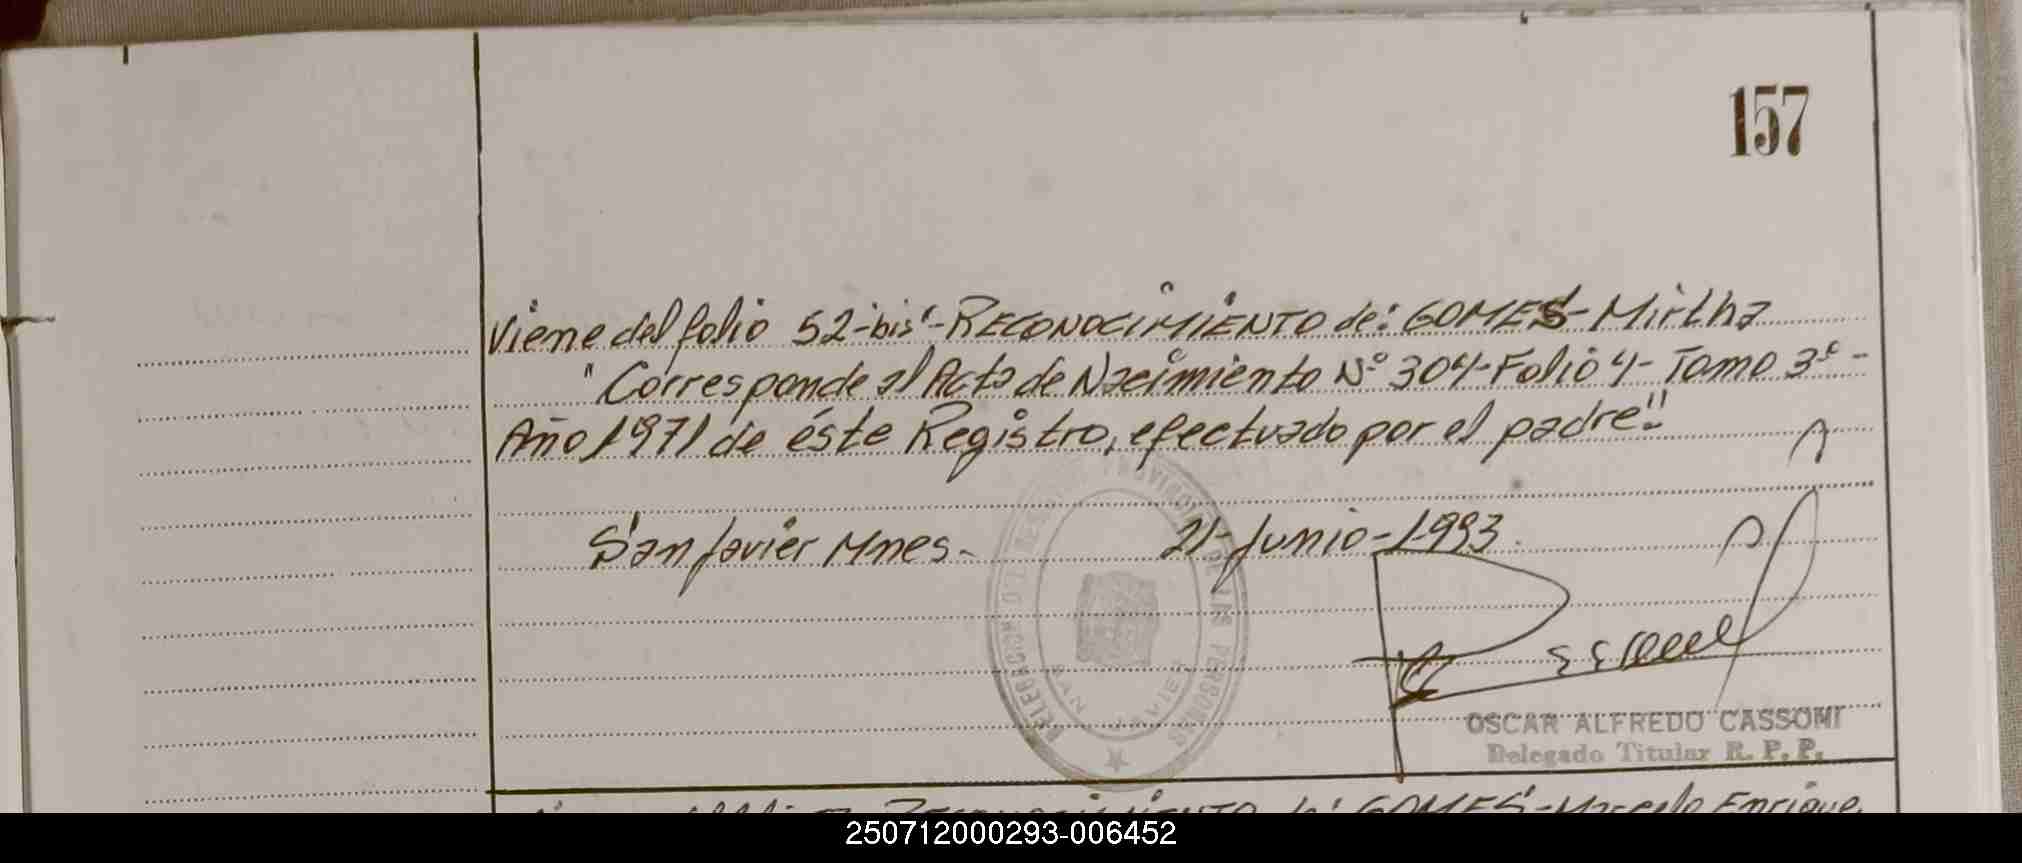 157
Viene del folio 52-bis-RECONOCIMIENTO de: GOMES-Mirtha
"Corresponde al Acta de Nacimiento Nº 304-Folio 4-Tomo 3º-
Año 1971 de éste Registro, efectuado por el padre"
San Javier Mnes.- 21-Junio-1993.
OSCAR ALFREDO CASSOMI
Delegado Titular R. P. P.
RECONOCIMIENTO de: GOMES-Marcelo Enrique
250712000293-006452